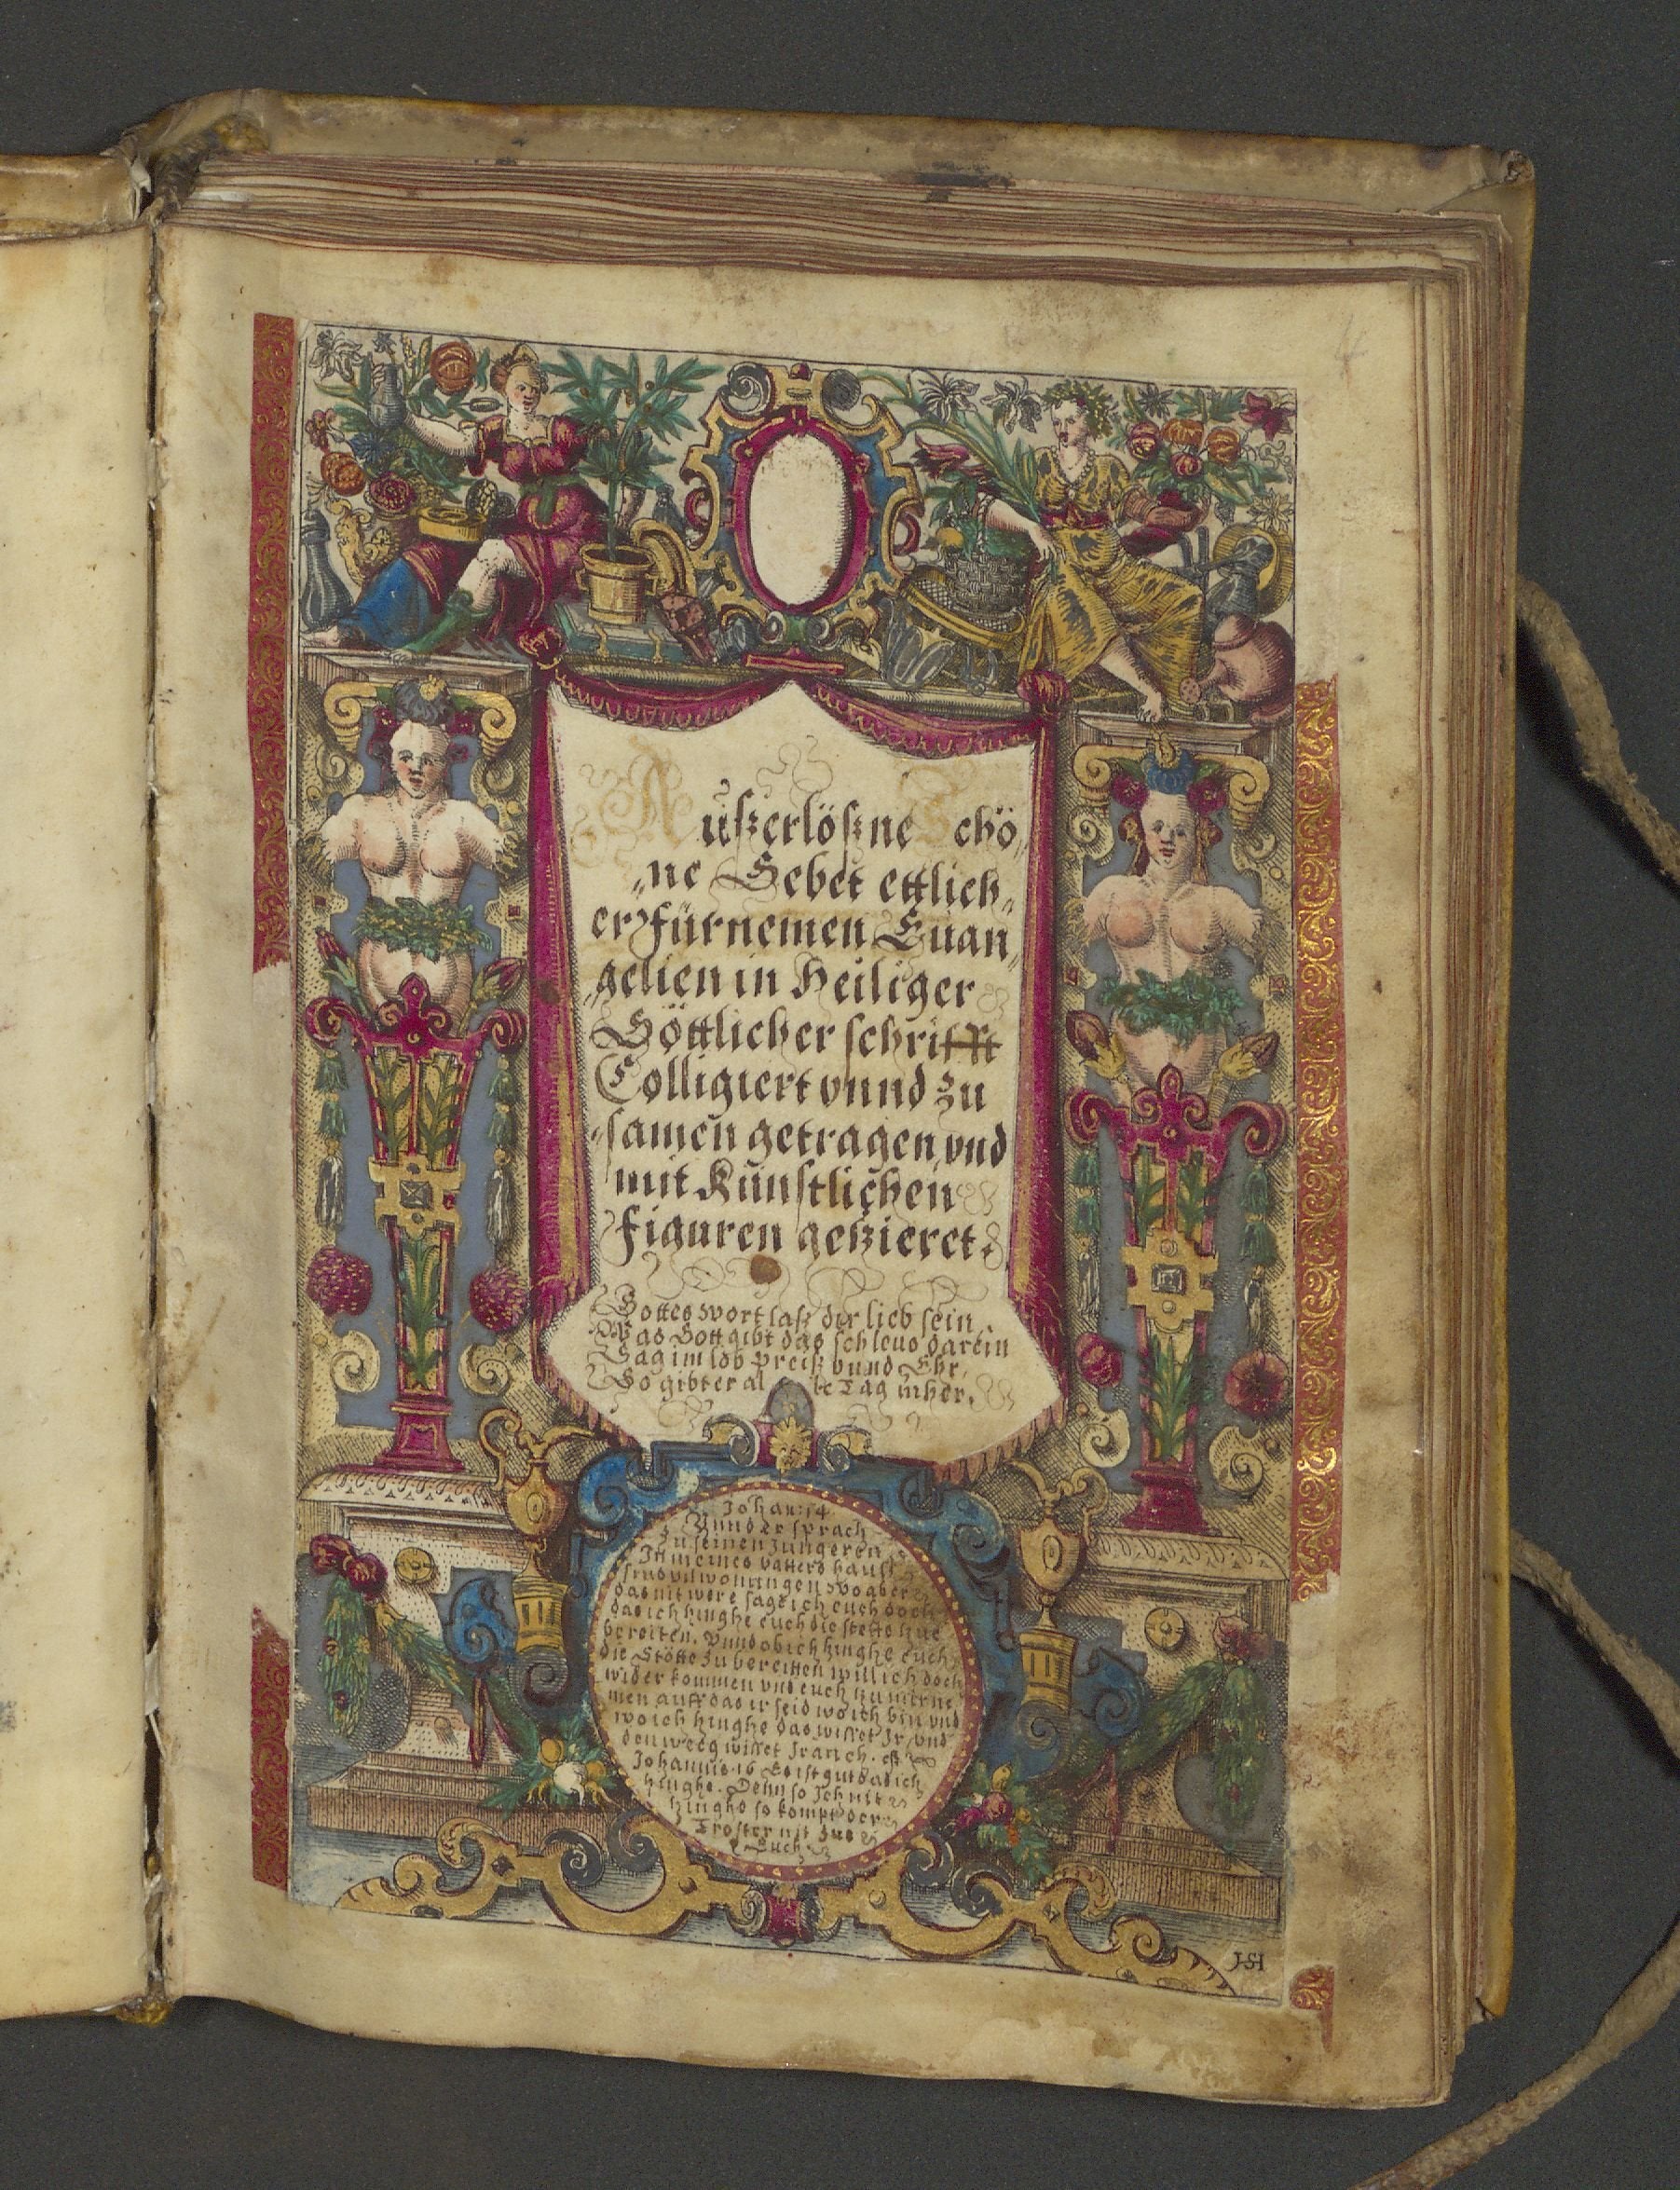 Außerlößne Schö„
„ne Gebet ettlich„
er Fürnemen Euan„
„gelien in Heiliger
Göttlicher schrifft
Colligiert vnnd zu
„samen getragen, vnd
mit Künstlichen
Figuren geßieret.
Gottes wort laß dir lieb sein
Was Gott gibt das schleus darein
Sag im lob Preiß vnnd Ehr,
So gibt er al le Tag mher.
Johan: 14
Vnnd er sprach
zu seinen Jüngeren
In meines vatters hauß
sind vil wonungen, wo aber
das nit were sagt ich euch doch
das ich hinghe euch die stette zue
bereiten. Vnnd ob ich hinghe euch
die Stötte zu bereitten will ich doch
wider kommen vnd euch zu mir ne
men auff das ir seid wo ich bin vnd
wo ich hinghe das wisset Jr, vnd
den weeg wisset Jr auch.
Johannis 16 Es ist gut das ich
hinghe. Denn so Ich nit
hinghe so kompt der
Troster nit zue
Euch
JSH